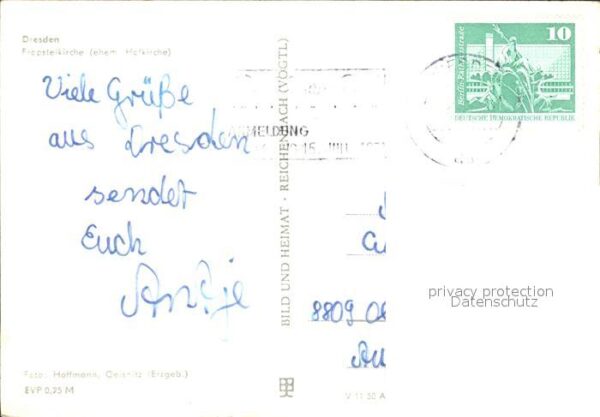 Dresden
Propsteikirche (ehem. Hofkirche)
Viele Grüße
aus Dresden
sendet
Euch
Antje
Foto: Hoffmann, Oelsnitz (Erzgeb.)
EVP 0,25 M
BILD UND HEIMAT · REICHENBACH (VOGTL)
V 11 50 A
MELDUNG
15.
10
Berlin-Rathausstraße
DEUTSCHE DEMOKRATISCHE REPUBLIK
8809
privacy protection
Datenschutz